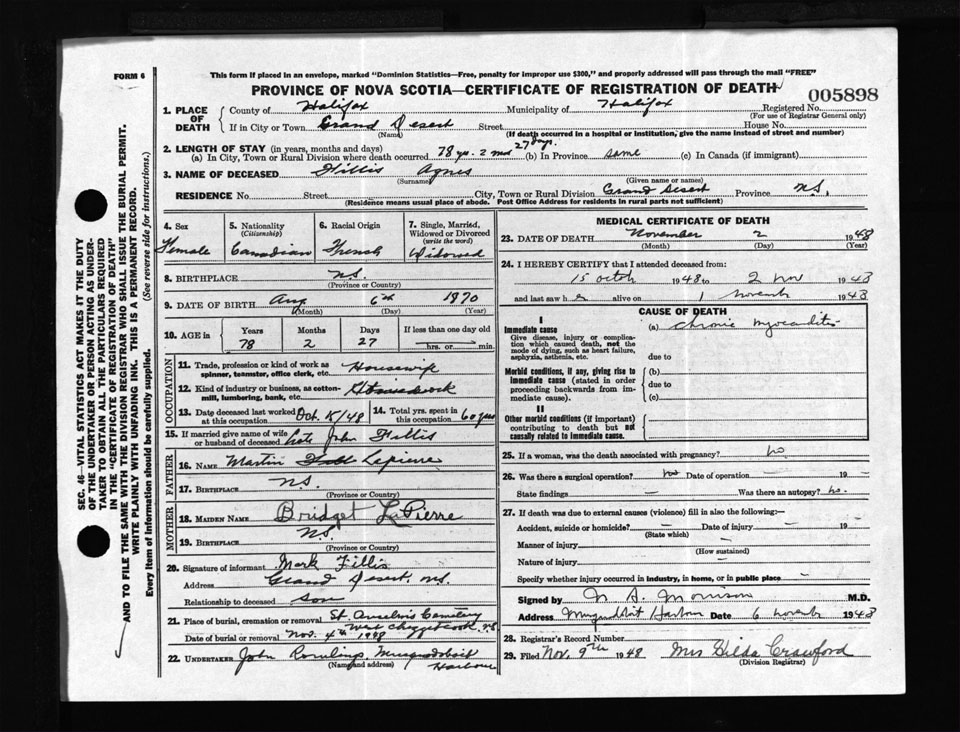 FORM 6
This form if placed in an envelope, marked "Dominion Statistics—Free, penalty for improper use $300," and properly addressed will pass through the mail "FREE"
PROVINCE OF NOVA SCOTIA—CERTIFICATE OF REGISTRATION OF DEATH
005898
1. PLACE OF DEATH County of Halifax Municipality of Halifax Registered No.
(For use of Registrar General only)
If in City or Town Grand Desert Street House No.
(Name) (If death occurred in a hospital or institution, give the name instead of street and number)
2. LENGTH OF STAY (in years, months and days)
(a) In City, Town or Rural Division where death occurred 78 yrs. 2 mos 27 days. (b) In Province same (c) In Canada (if immigrant)
3. NAME OF DECEASED Fillis Agnes
(Surname) (Given name or names)
RESIDENCE No. Street City, Town or Rural Division Grand Desert Province N.S.
(Residence means usual place of abode. Post Office Address for residents in rural parts not sufficient)
4. Sex Female
5. Nationality (Citizenship) Canadian
6. Racial Origin French
7. Single, Married, Widowed or Divorced (write the word) Widowed
8. BIRTHPLACE N.S.
(Province or Country)
9. DATE OF BIRTH Aug 6th 1870
(Month) (Day) (Year)
10. AGE in Years Months Days If less than one day old
78 2 27 hrs. or min.
OCCUPATION
11. Trade, profession or kind of work as spinner, teamster, office clerk, etc. Housewife
12. Kind of industry or business, as cotton-mill, lumbering, bank, etc.
13. Date deceased last worked at this occupation Oct. 15/48
14. Total yrs. spent in this occupation 60 yrs
15. If married give name of wife or husband of deceased Late John Fillis
FATHER
16. NAME Martin Lapierre
17. BIRTHPLACE N.S.
(Province or Country)
MOTHER
18. MAIDEN NAME Bridget LaPierre
19. BIRTHPLACE N.S.
(Province or Country)
20. Signature of informant Mark Fillis
Address Grand Desert, N.S.
Relationship to deceased son
21. Place of burial, cremation or removal St. Anselm's Cemetery
West Chezzetcook, N.S.
Date of burial or removal Nov. 4th 1948
22. UNDERTAKER John Rowlings, Musquodoboit Harbour
(Name and address)
MEDICAL CERTIFICATE OF DEATH
23. DATE OF DEATH November 2 1948
(Month) (Day) (Year)
24. I HEREBY CERTIFY that I attended deceased from:
15 octob 1948 to 2 nov 1948
and last saw her alive on 1 novemb 1948
CAUSE OF DEATH
I
Immediate cause (a) chronic myocarditis
Give disease, injury or complication which caused death, not the mode of dying, such as heart failure, asphyxia, asthenia, etc.
due to
Morbid conditions, if any, giving rise to immediate cause (stated in order proceeding backwards from immediate cause). (b)
due to
(c)
II
Other morbid conditions (if important) contributing to death but not causally related to immediate cause.
25. If a woman, was the death associated with pregnancy? no
26. Was there a surgical operation? no Date of operation — 19 —
State findings — Was there an autopsy? no.
27. If death was due to external causes (violence) fill in also the following:—
Accident, suicide or homicide? — Date of injury — 19 —
(State which)
Manner of injury —
(How sustained)
Nature of injury —
Specify whether injury occurred in industry, in home, or in public place —
Signed by N S. Morrison M.D.
Address Musquodoboit Harbour Date 6 novemb 1948
28. Registrar's Record Number
29. Filed Nov. 9th 1948 Mrs Hilda Crawford
(Division Registrar)
SEC. 46—VITAL STATISTICS ACT MAKES IT THE DUTY
OF THE UNDERTAKER OR PERSON ACTING AS UNDER-
TAKER TO OBTAIN ALL THE PARTICULARS REQUIRED
IN THE "CERTIFICATE OF REGISTRATION OF DEATH"
AND TO FILE THE SAME WITH THE DIVISION REGISTRAR WHO SHALL ISSUE THE BURIAL PERMIT.
WRITE PLAINLY WITH UNFADING INK. THIS IS A PERMANENT RECORD.
Every item of information should be carefully supplied. (See reverse side for instructions.)